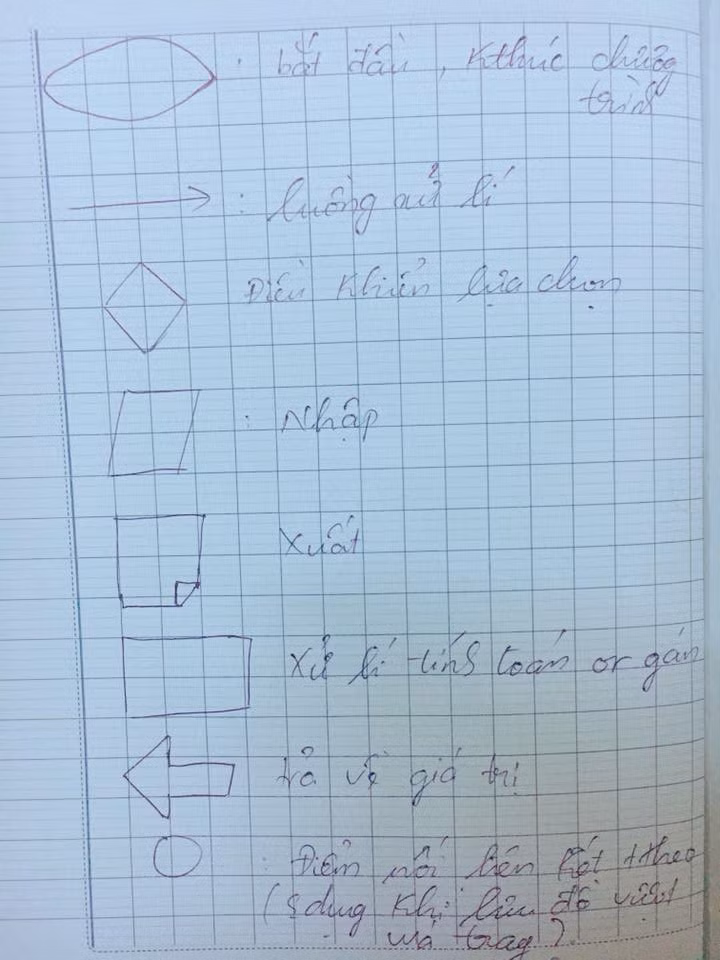 : bắt đầu, kthúc chương
trình
: luồng xử lí
Điều khiển lựa chọn
: Nhập
Xuất
Xử lí tính toán or gán
trả về giá trị
: Điểm nối liên kết ttheo
(sdụng khi lưu đồ vượt
quá trag)